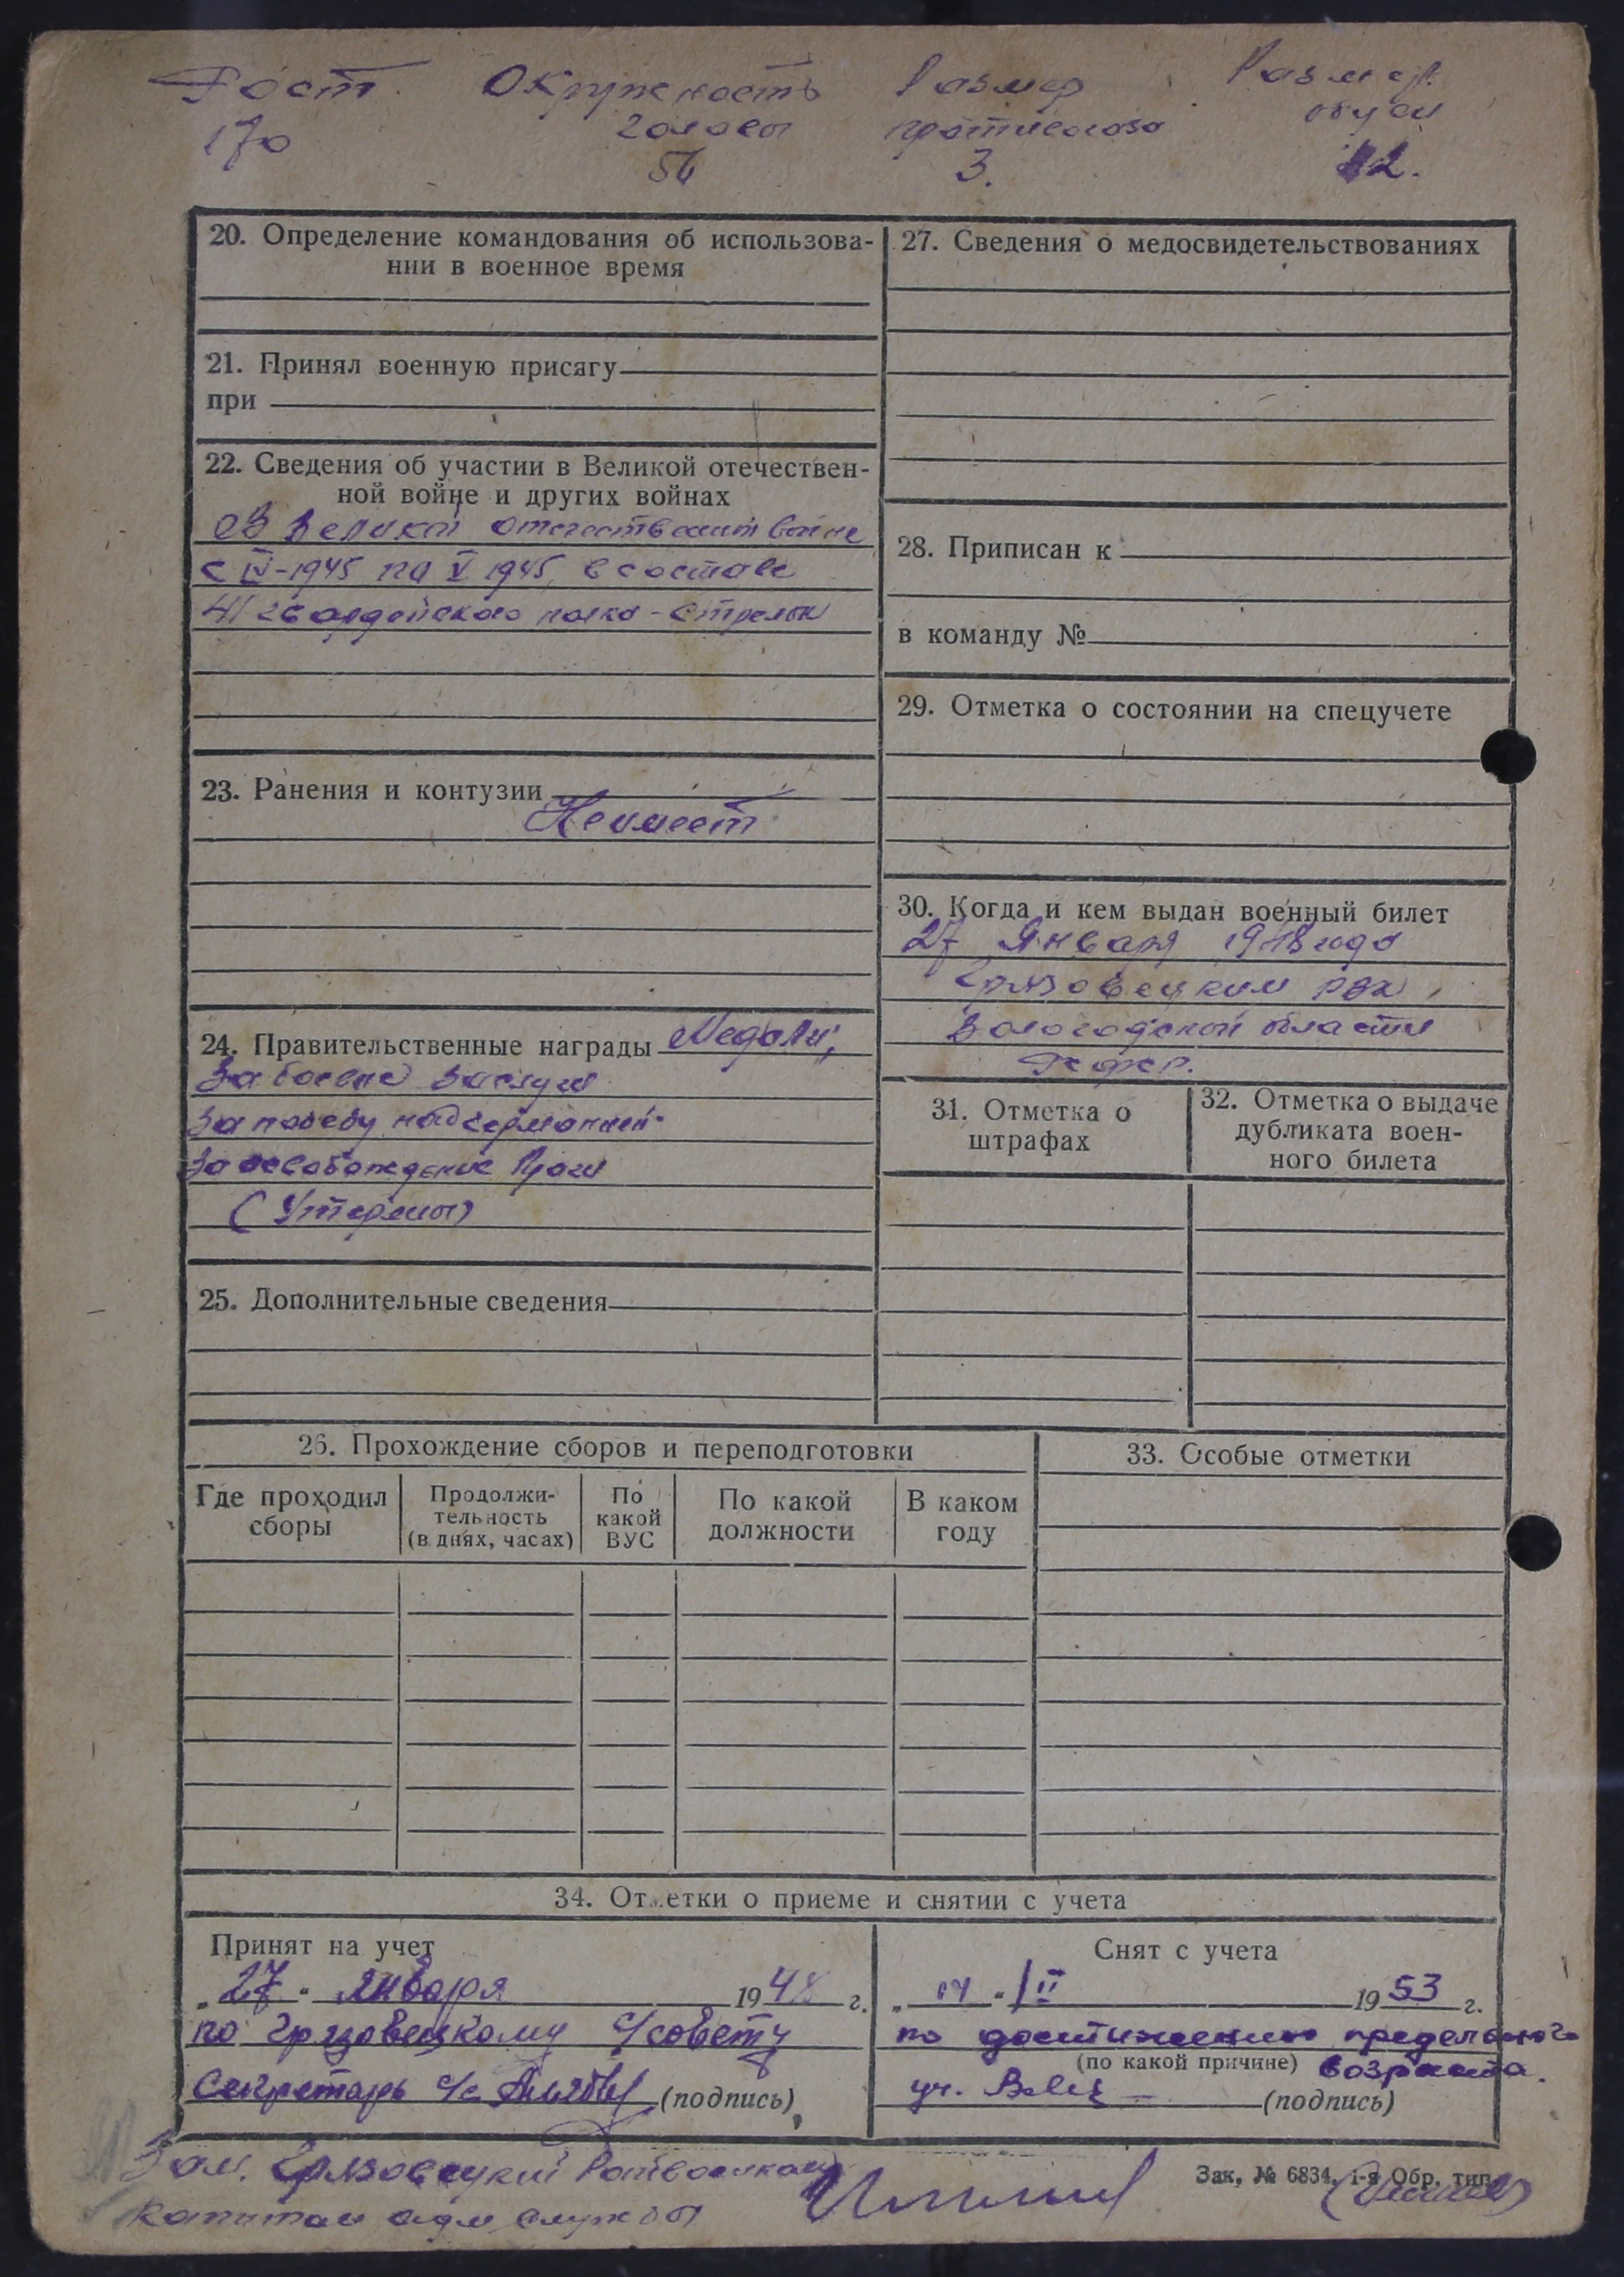 Рост Окружность Размер Размер
170 головы противогаза обуви
56 3. 42.
20. Определение командования об использова-
нии в военное время
21. Принял военную присягу
при
22. Сведения об участии в Великой отечествен-
ной войне и других войнах
В Великой отечественной войне
с IV-1945 по V 1945, в составе
41 гвардейского полка - стрелок
23. Ранения и контузии
Не имеет
24. Правительственные награды Медали;
За боевые заслуги
За победу над германией
За освобождение Праги
(Утеряны)
25. Дополнительные сведения
27. Сведения о медосвидетельствованиях
28. Приписан к
в команду №
29. Отметка о состоянии на спецучете
30. Когда и кем выдан военный билет
27 Января 1948 года
Грязовецким РВК
Вологодской области
31. Отметка о
штрафах
32. Отметка о выдаче
дубликата воен-
ного билета
26. Прохождение сборов и переподготовки
Где проходил
сборы
Продолжи-
тельность
(в днях, часах)
По
какой
ВУС
По какой
должности
В каком
году
33. Особые отметки
34. Отметки о приеме и снятии с учета
Принят на учет
„27" января 1948 г.
по Грязовецкому с/совету
Секретарь с/с (подпись)
Снят с учета
1953 г.
по достижению предельного
(по какой причине) возраста.
(подпись)
Зам. Грязовецкий Райвоенком
капитан адм службы
Зак. № 6834. 1-я Обр. тип.